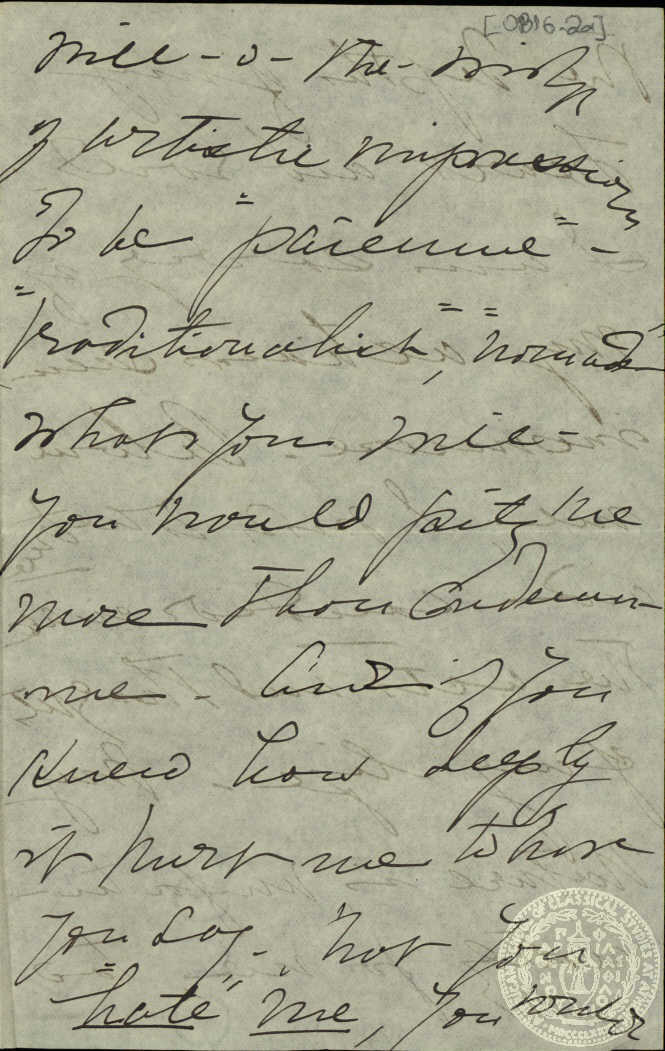 [OB16-2a]
Will-o-the-wisp
of artistic impressions
To be "païenne" -
"traditionalist", "nomad"
what you will -
you would pity me
more than condemn
me - And if you
knew how deeply
it hurt me to have
you say - not you
"hate" me, you would
CLASSICAL STUDIES AT